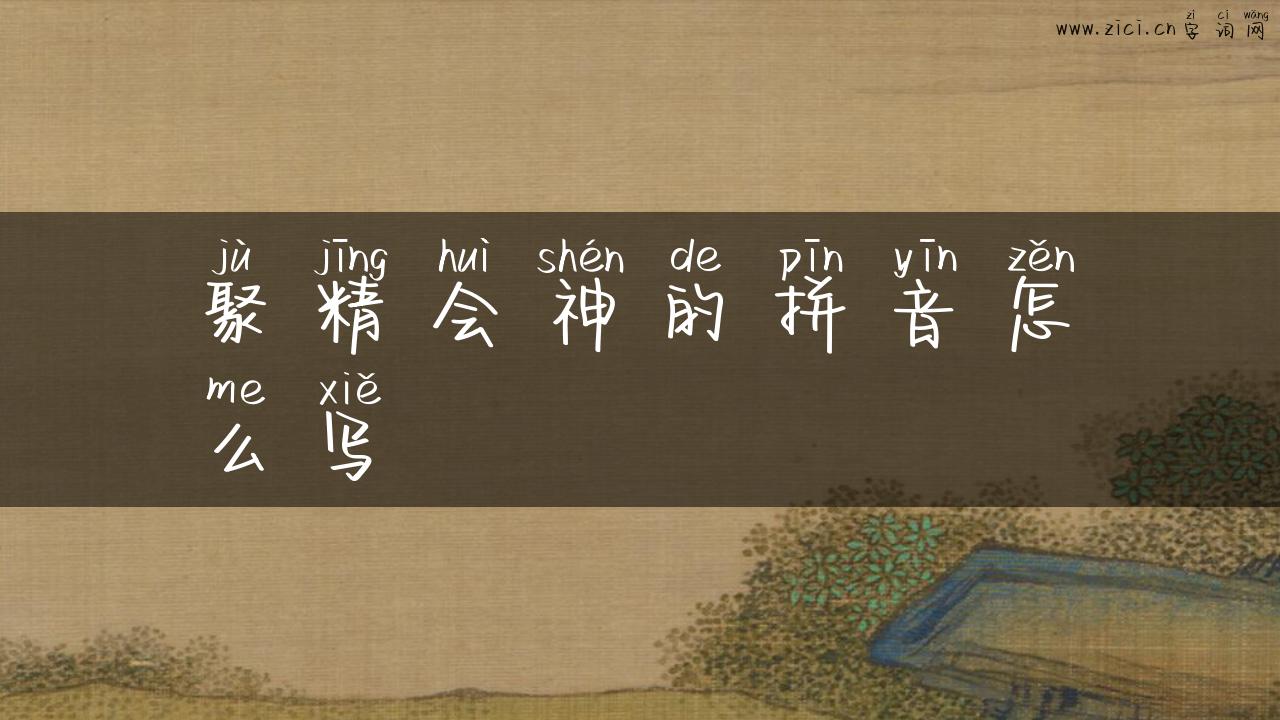 zì cí wǎng
www.zici.cn 字 词 网
jù jīng huì shén de pīn yīn zěn
聚 精 会 神 的 拼 音 怎
me xiě
么 写